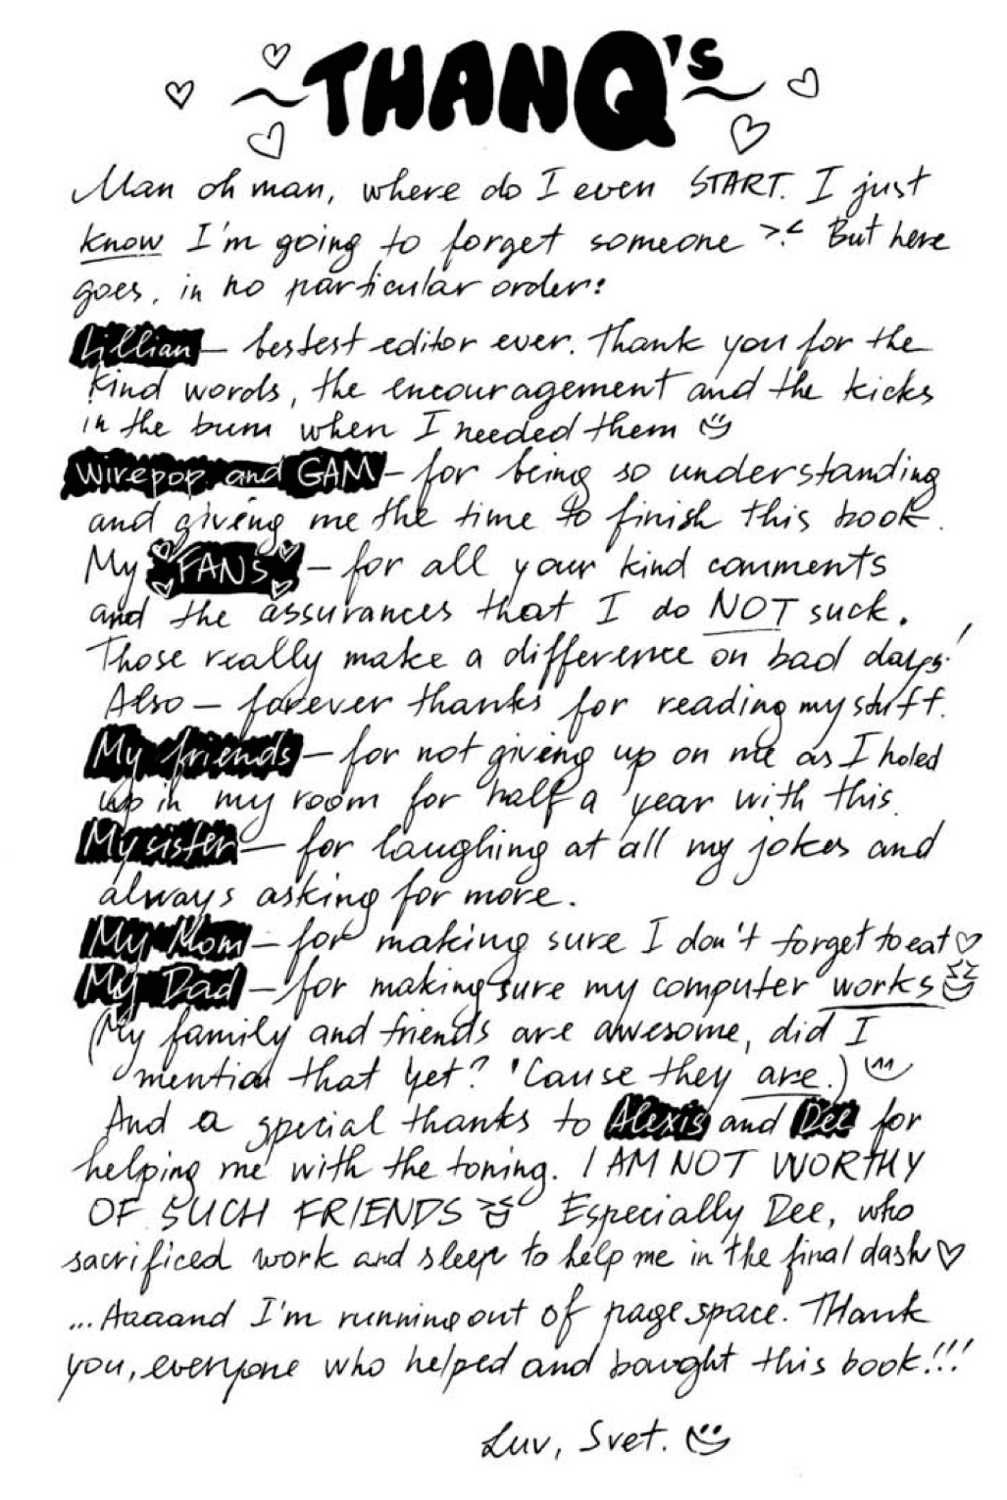 THANQ's
Man oh man, where do I even START. I just
know I'm going to forget someone >.< But here
goes, in no particular order:
Lillian – bestest editor ever. Thank you for the
kind words, the encouragement and the kicks
in the bum when I needed them
Wirepop and GAM – for being so understanding
and giving me the time to finish this book.
My FANS – for all your kind comments
and the assurances that I do NOT suck.
Those really make a difference on bad days!
Also – forever thanks for reading my stuff.
My friends – for not giving up on me as I holed
up in my room for half a year with this.
My sister – for laughing at all my jokes and
always asking for more.
My Mom – for making sure I don't forget to eat ♡
My Dad – for making sure my computer works
(My family and friends are awesome, did I
mention that yet? 'Cause they are.)
And a special thanks to Alexis and Dee for
helping me with the toning. I AM NOT WORTHY
OF SUCH FRIENDS Especially Dee, who
sacrificed work and sleep to help me in the final dash ♡
...Aaaand I'm running out of page space. THank
you, everyone who helped and bought this book!!!
Luv, Svet.